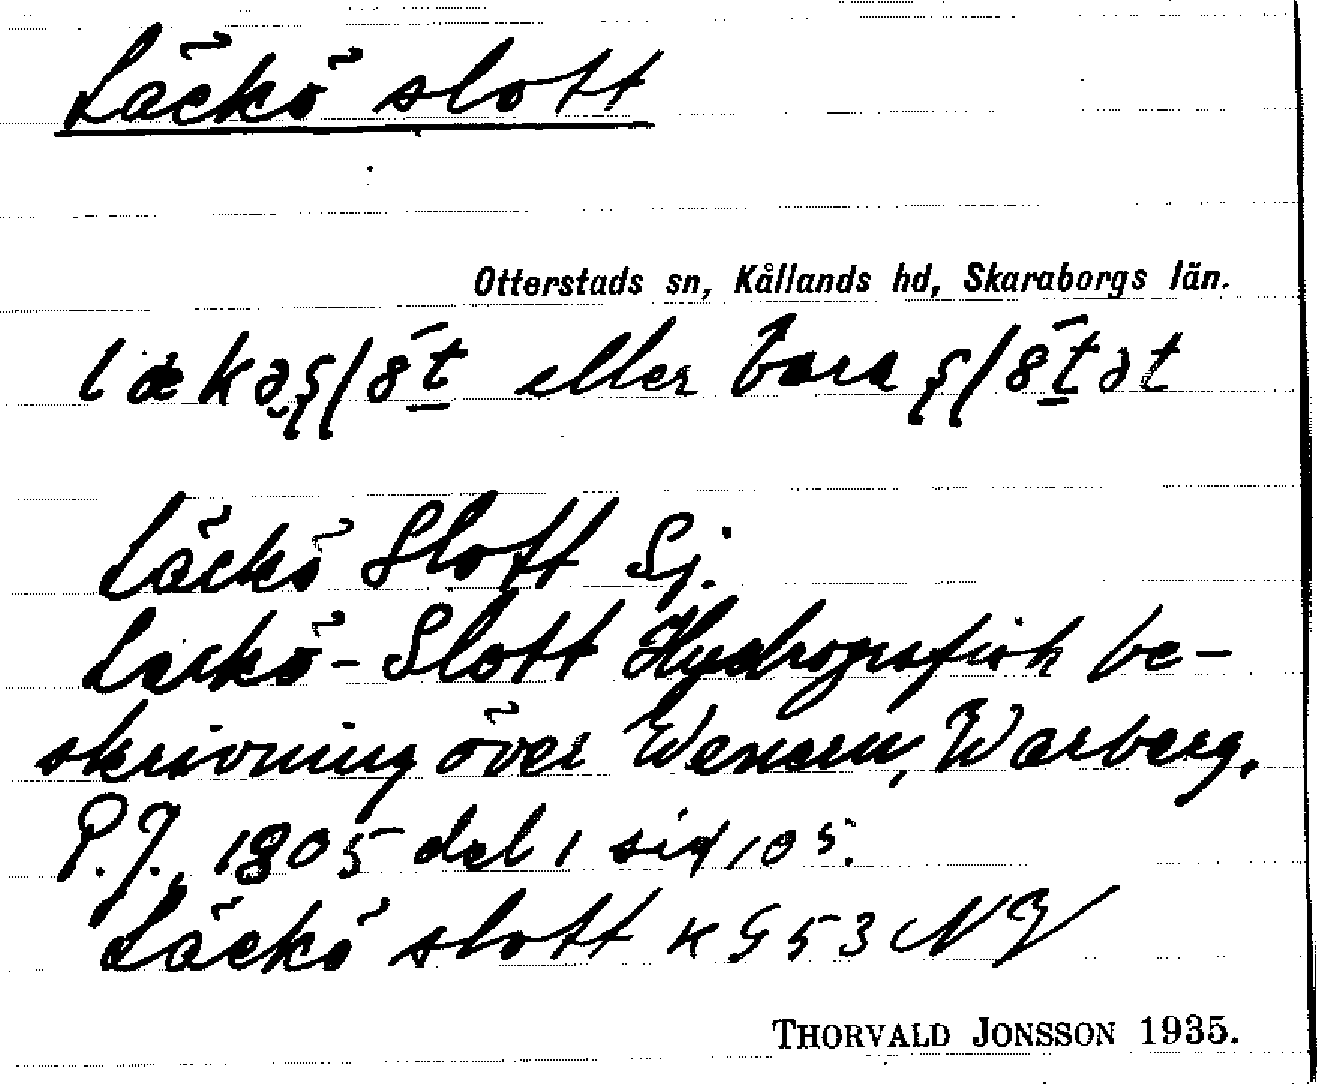 Läckö slott
Otterstads sn, Kållands hd, Skaraborgs län.
eller bara
Läckö Slott Sj.
Läckö-Slott Hydrografisk be-
skrivning över Wenern, Warberg,
P.J., 1805 del 1 sid 105.
Läckö slott
THORVALD JONSSON 1935.